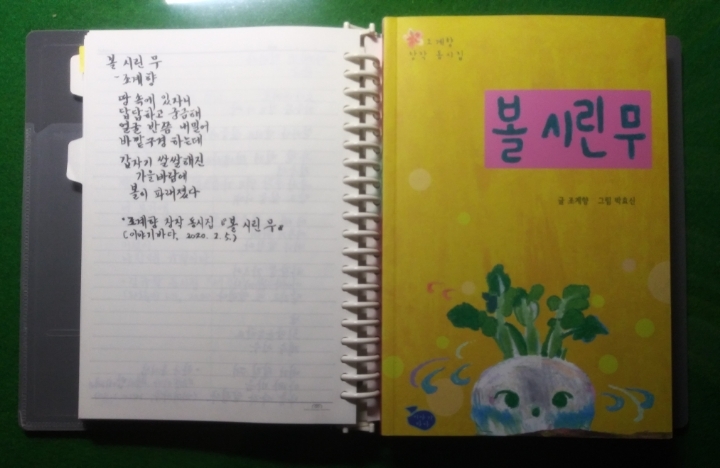 볼 시린 무
- 조계향
땅 속에 있자니
답답하고 궁금해
얼굴 반쯤 내밀어
바깥구경 하는데
갑자기 쌀쌀해진
가을바람에
볼이 파래졌다
· 조계향 창작 동시집 『볼 시린 무』
(이야기바다, 2020. 2. 5.)
조계향
창작 동시집
볼 시린 무
글 조계향 그림 박효신